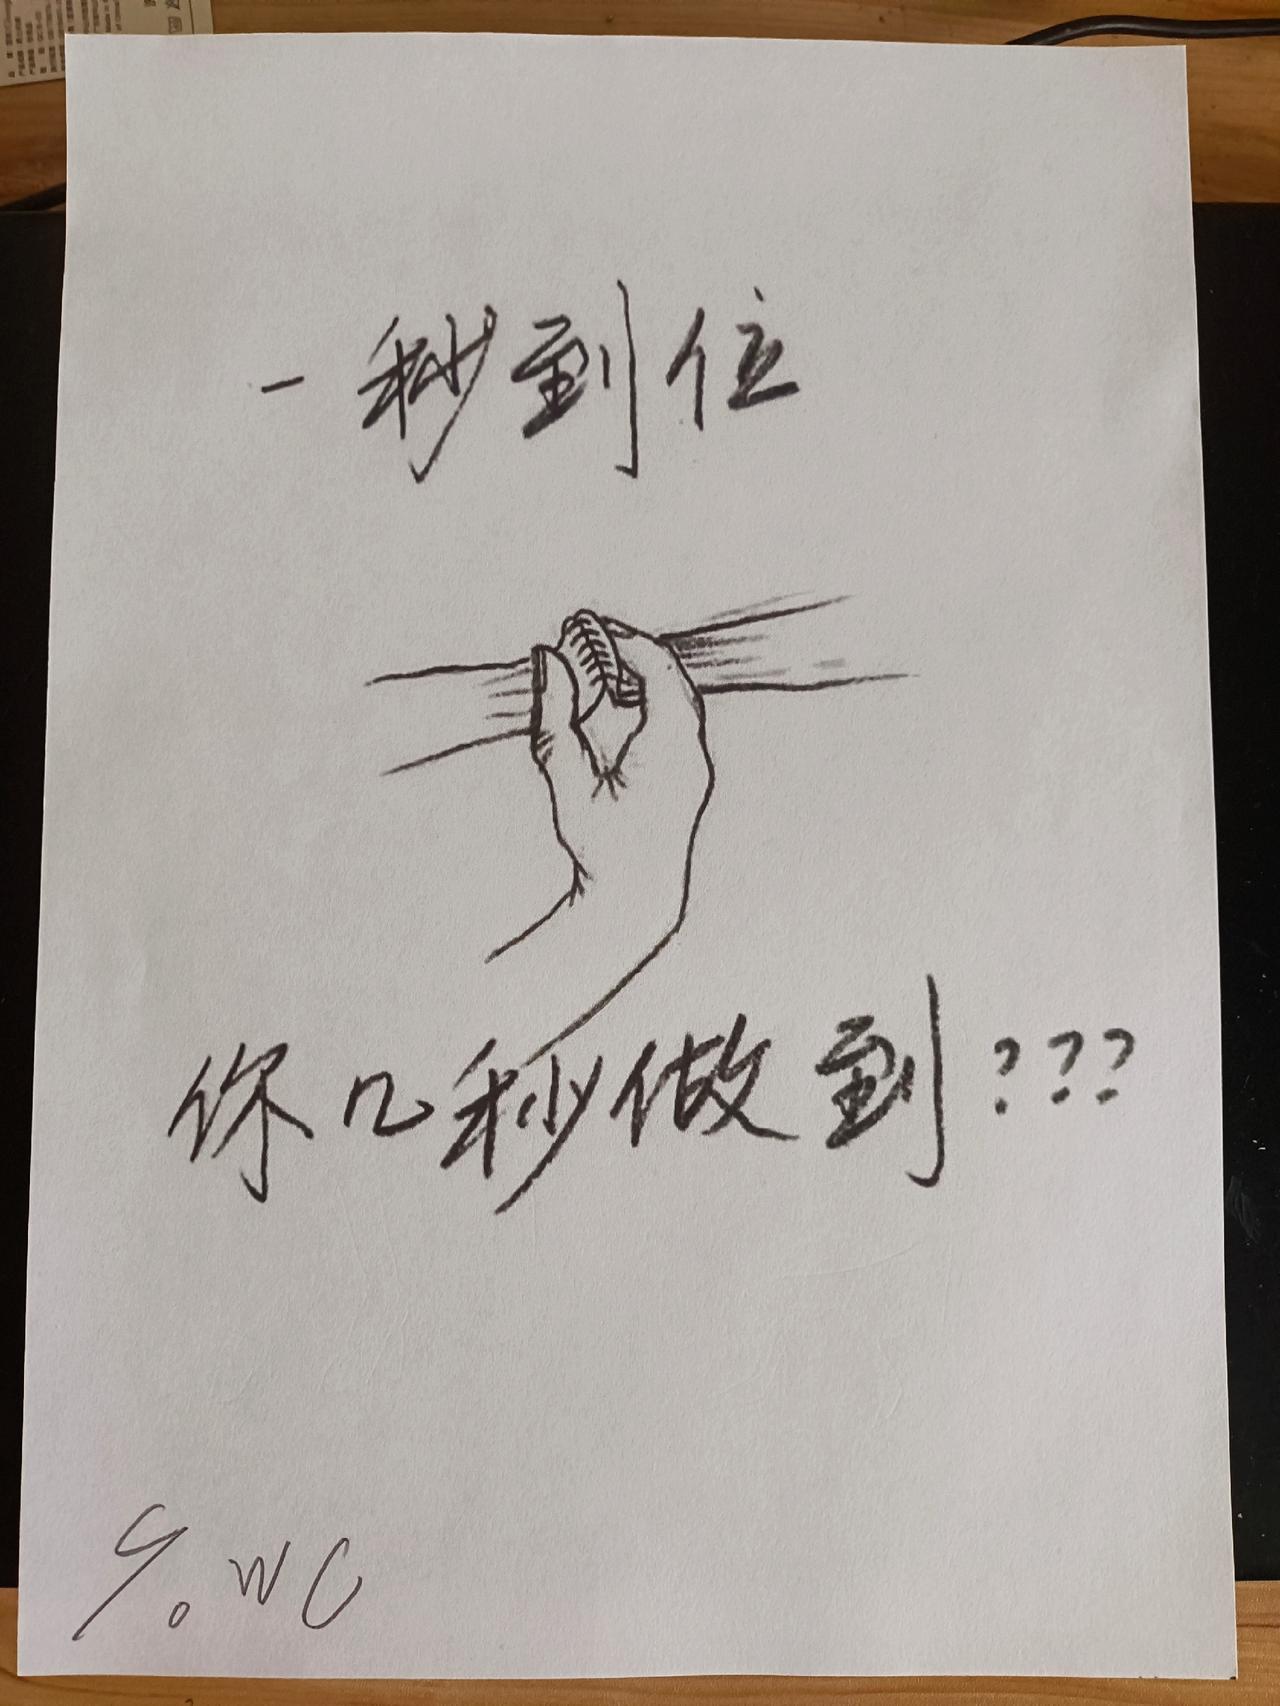 一秒到位
你几秒做到???